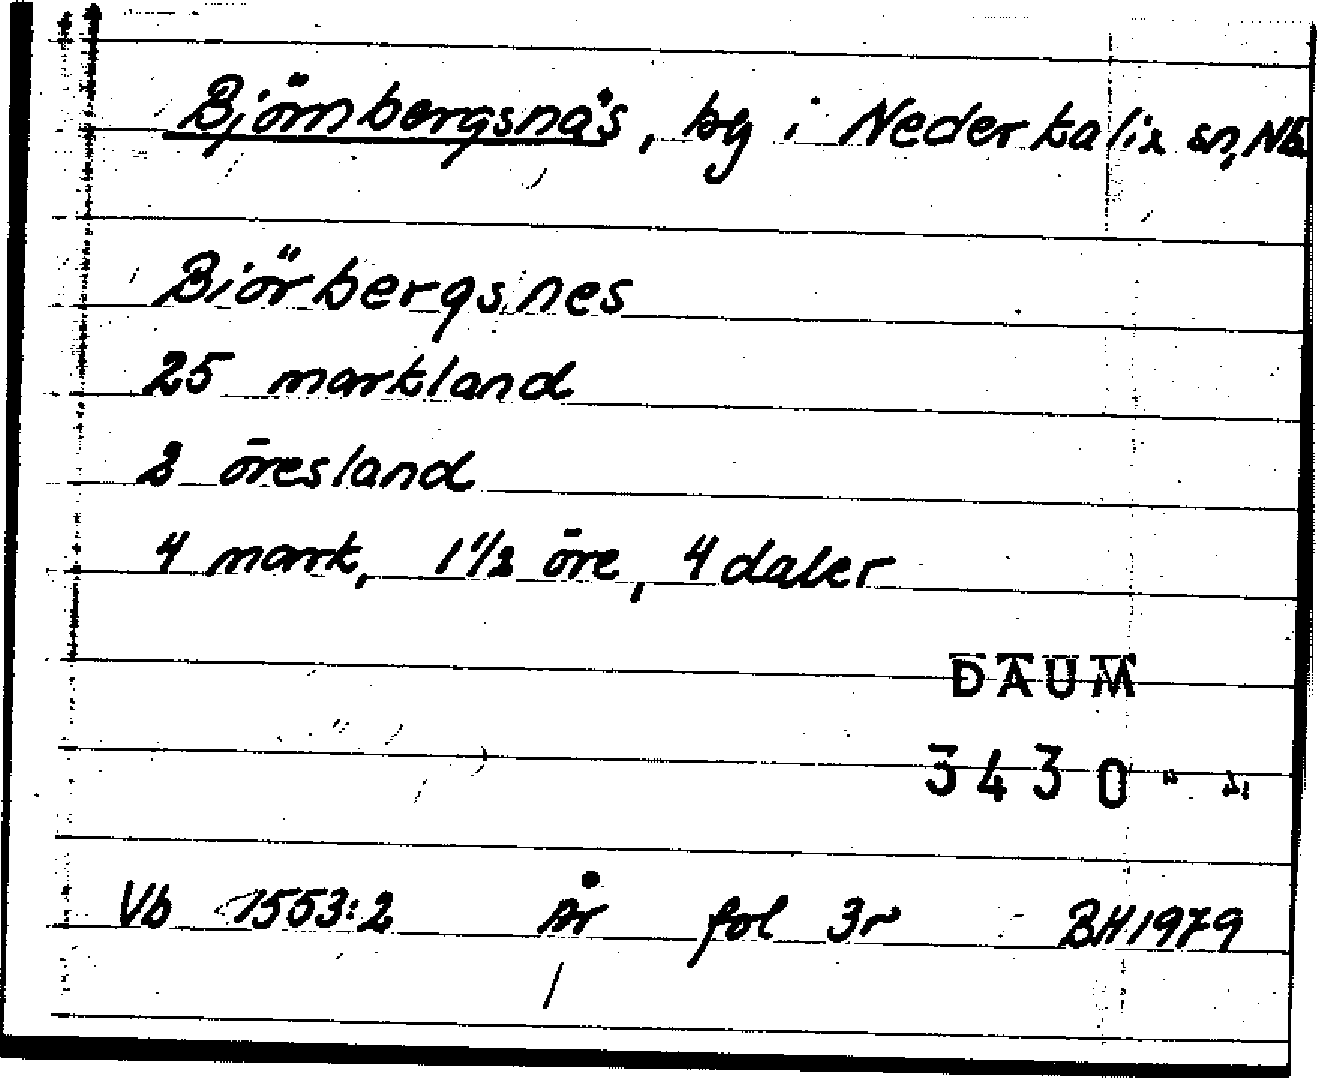 Björnbergsnäs, by i Nederkalix sn, Nb
Biörbergsnes
25 markland
2 öresland
4 mark, 1 1/2 öre, 4 daler
DAUM
3430
Vb 1553:2 år fol 3r BH 1979